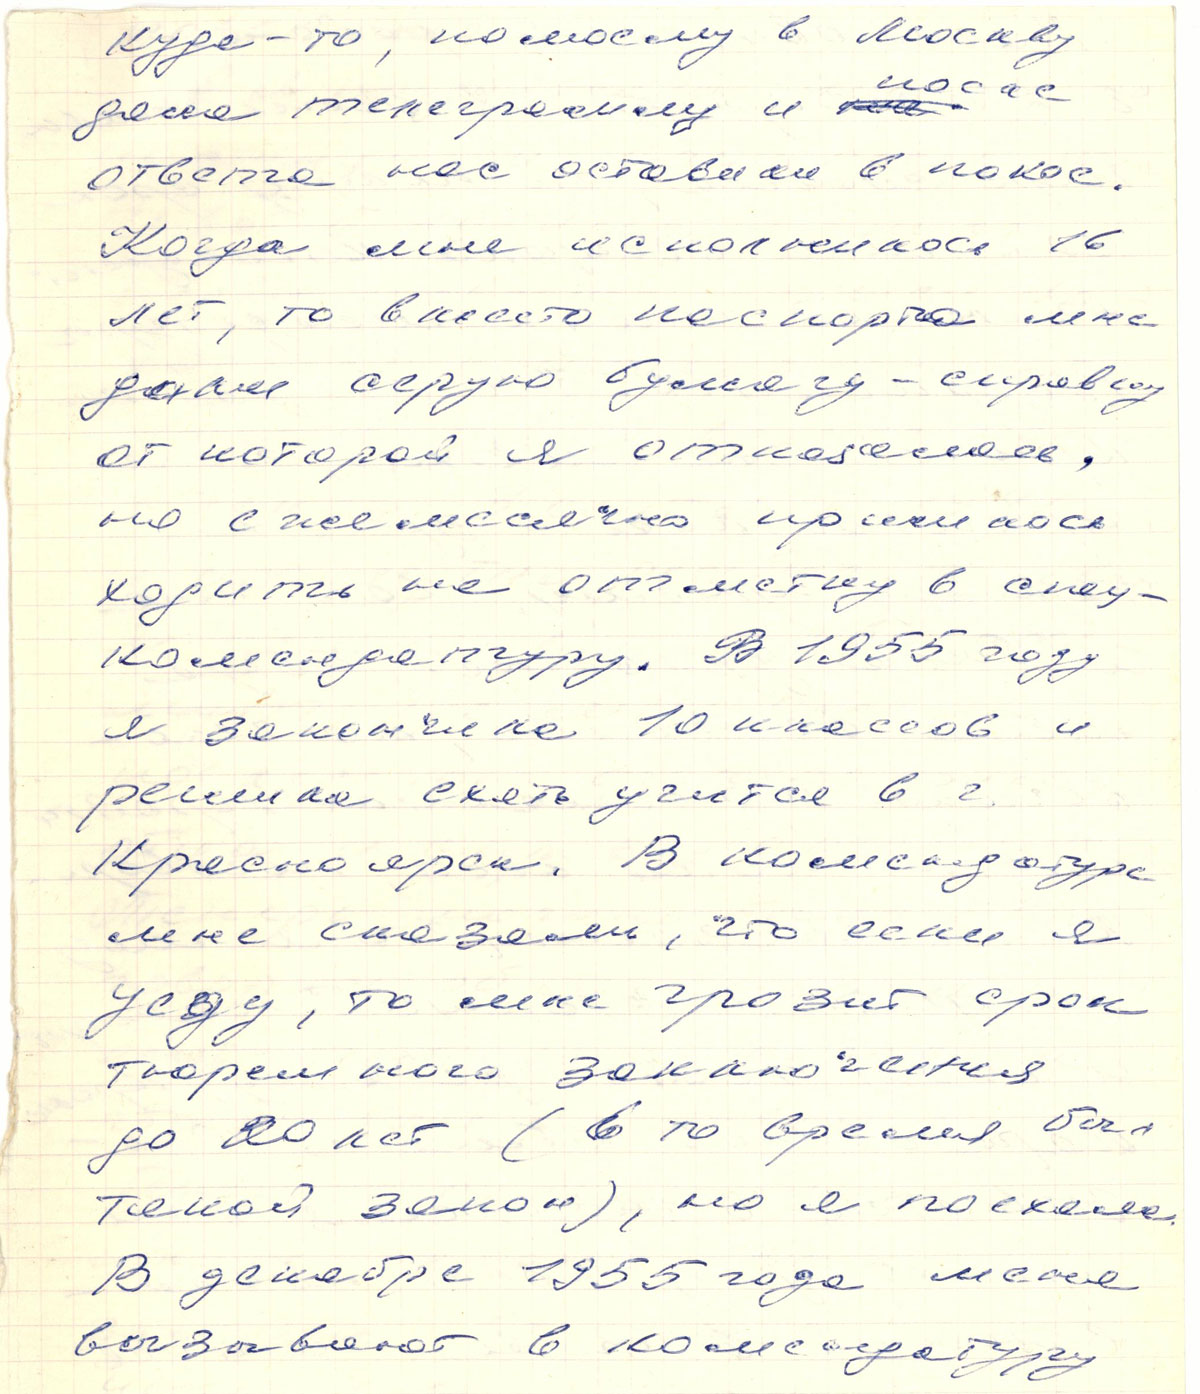 куда-то, помоему в Москву
дала телеграмму и после
ответа нас оставили в покое.
Когда мне исполнилось 16
лет, то вместо паспорта мне
дали серую бумагу - справку
от которой я отказалась,
но ежемесячно пришлось
ходить на отметку в спец-
комендатуру. В 1955 году
я закончила 10 классов и
решила ехать учится в г.
Красноярск. В комендатуре
мне сказали, что если я
уеду, то мне грозит срок
тюремного заключения
до 20 лет (в то время был
такой закон), но я поехала.
В декабре 1955 года меня
вызывают в комендатуру